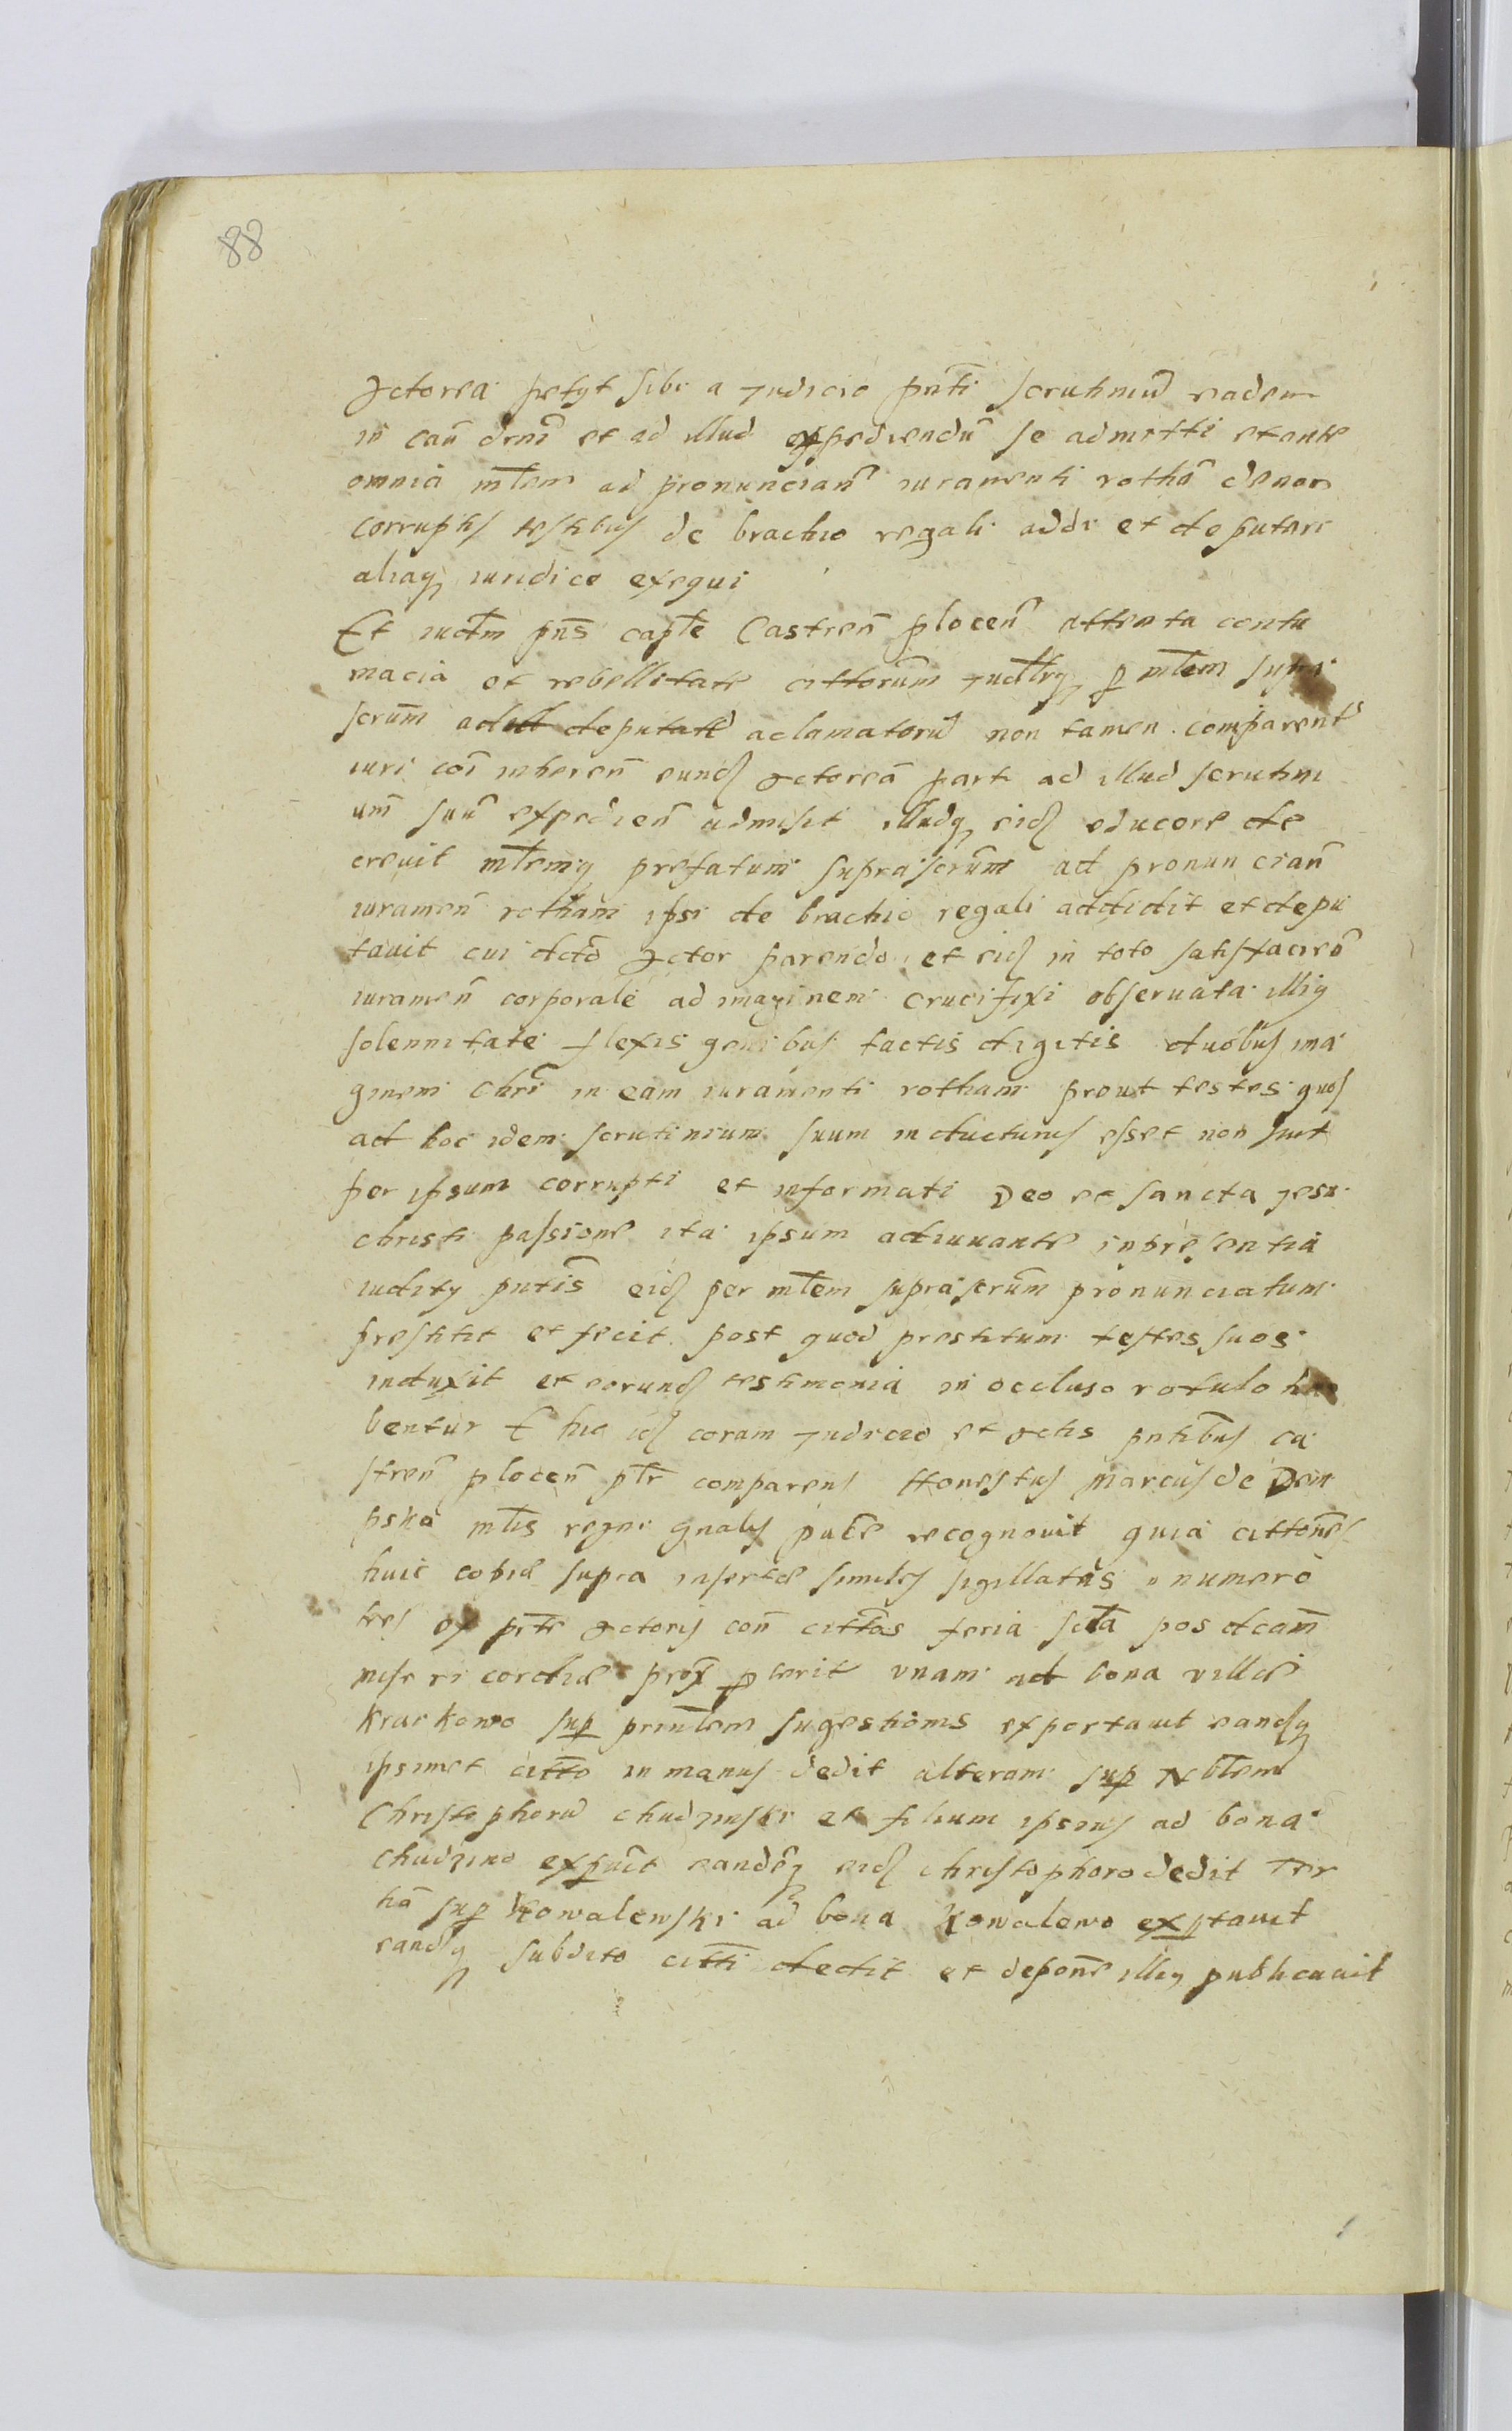 88
Actorea petyt sibi a Judicio pnti scrutiniũ eadem
in cau drni et ad illud expediendũ se admitti et ante
omnia mlem ad pronuncian iuramenti rothã de non
corruptis testibus de brachio regali addi et deputari
aliaq iuridice exequi
Et iudm pns caple Castren plocen attenta contu
macia et rebellitate cittorum Judlrq p mlem supra
scrum ad deputatũ aclamatorũ non tamen comparent
iuri coi inheren eund actoreã parti ad illud scrutini
um suũ expedien admisit illudq eid educere de
crevit mlemq prefatum suprascrum ad pronuncian
iuramen rotham ipsi de brachio regali addidit et depu
tauit cui dcto Actor parendo et eid in toto satisfaciẽ
iuramen corporale ad imaginem crucifixi observata illiq
solennitate flexis genibus tactis digitis duobus ima
ginem chri in eam iuramenti rotham prout testes quos
ad hoc idem scrutinium suum inducturus esset non sunt
per ipsum corrupti et informati Deo et sancta Jesu
christi passione ita ipsum adiuuante in presentia
iudity pntis eid per mlem suprascrum pronunciatum
prestitit et fecit post quod prestitum testes suos
induxit et eorund testimonia in occluso rotulo ha
bentur Et hic id coram Judicio et actis pntibus ca
stren plocen plr comparens Honestus Marcus de Dem
pska mlis regni gnalis puble recognouit quia cittones
huic copiæ supra insertæ similes sigillatas numero
tres ex prte actoris con cittas feria scda pos dcam
misericordiæ prox pterit vnam ad bona villæ
Krarkowo sup prmlem sugestionis exportauit eandq
ipsimet citto in manus dedit alteram sup Nblem
Christophorũ chudzinski et filium ipsius ad bona
chudzino expauit eandeq eid christophoro dedit Ter
tiã sup Kowalewski ad bona Kowalewo exptauit
eandq subdito citti dedit et depone illiq publicauit